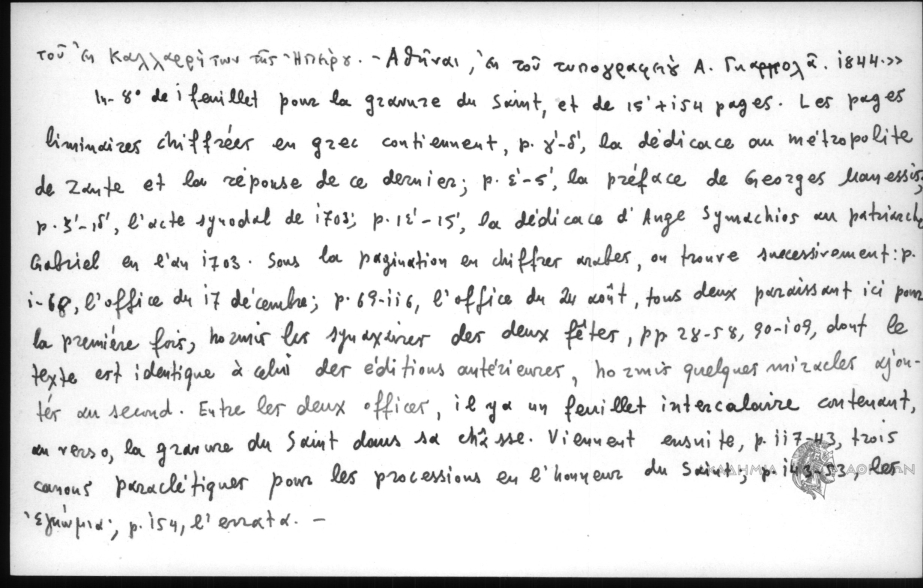 τοῦ ἐκ Καλλαρρήτων τῆς Ἠπείρου. - Ἀθῆναι, ἐκ τοῦ τυπογραφείου Α. Γκαρπολᾶ. 1844.»
In-8° de 1 feuillet pour la gravure du Saint, et de 15'+154 pages. Les pages
liminaires chiffrées en grec contiennent, p. γ'-δ', la dédicace au métropolite
de Zante et la réponse de ce dernier; p. ε'-ς', la préface de Georges Manessis;
p. ζ'-ιδ', l'acte synodal de 1703; p. ιε'-ις', la dédicace d'Ange Symachios au patriarche
Gabriel en l'an 1703. Sous la pagination en chiffres arabes, on trouve successivement: p.
1-68, l'office du 17 décembre; p. 69-116, l'office du 24 août, tous deux paraissant ici pour
la première fois, hormis les synaxaires des deux fêtes, pp 28-58, 90-109, dont le
texte est identique à celui des éditions antérieures, hormis quelques miracles ajou-
tés au second. Entre les deux offices, il y a un feuillet intercalaire contenant,
au verso, la gravure du Saint dans sa châsse. Viennent ensuite, p. 117-43, trois
canons paraclétiques pour les processions en l'honneur du Saint; p. 143-53, les
ἐγκώμια; p. 154, l'errata. -
ΑΚΑΔΗΜΙΑ ΑΘΗΝΩΝ